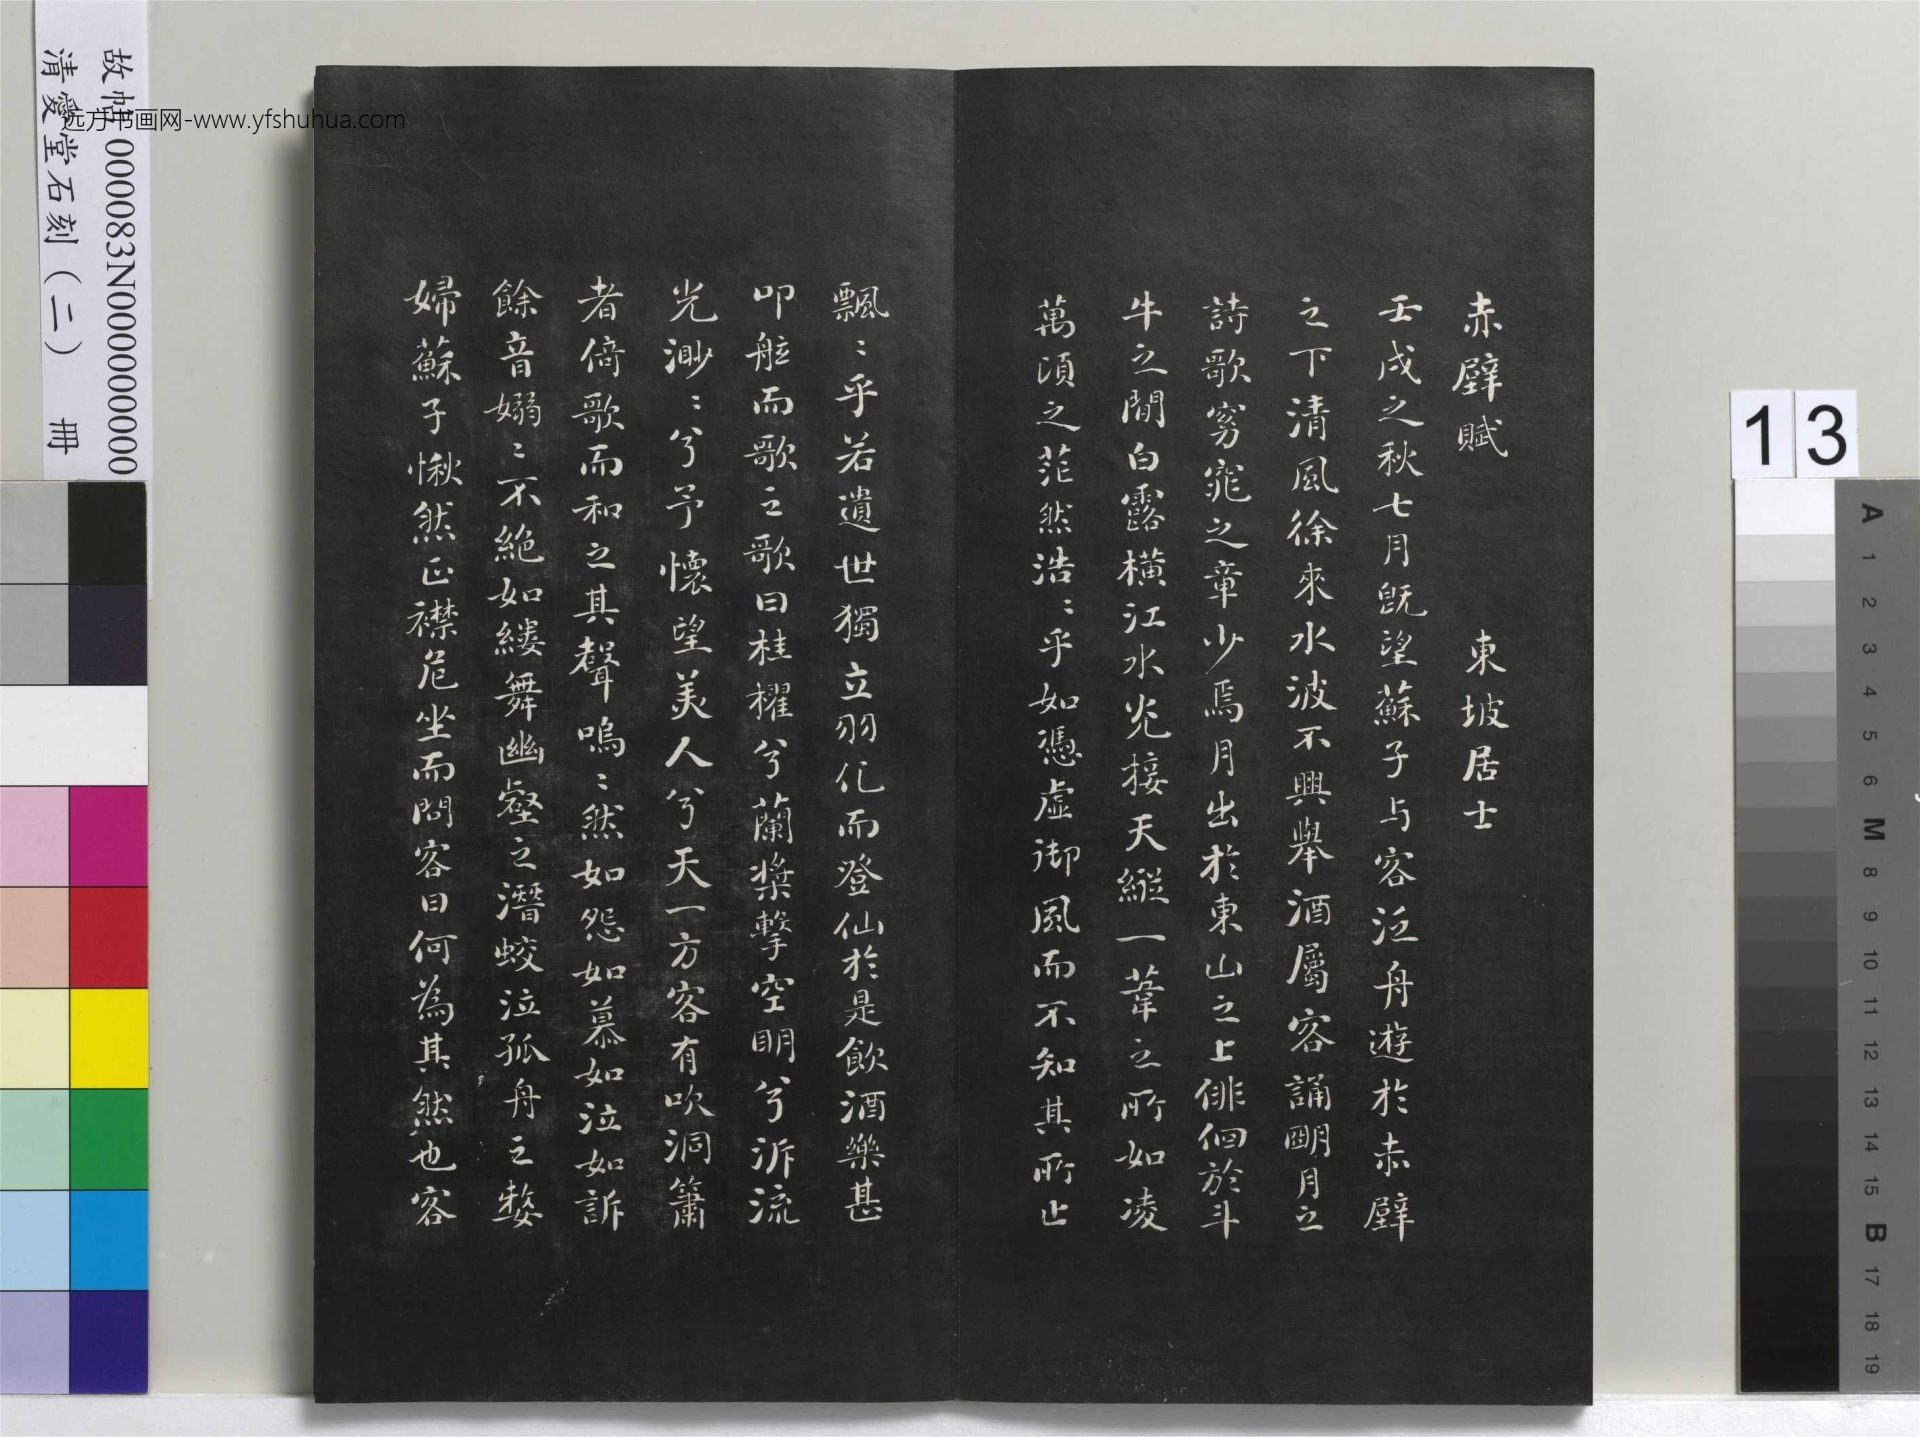 赤壁賦 東坡居士
壬戌之秋七月既望蘇子与客泛舟遊於赤壁
之下清風徐來水波不興舉酒屬客誦明月之
詩歌窈窕之章少焉月出於東山之上俳佪於斗
牛之閒白露橫江水光接天縱一葦之所如凌
萬頃之茫然浩〻乎如憑虛御風而不知其所止
飄〻乎若遺世獨立羽化而登仙於是飲酒樂甚
叩舷而歌之歌曰桂櫂兮蘭槳擊空明兮泝流
光渺〻兮予懷望美人兮天一方客有吹洞簫
者倚歌而和之其聲嗚〻然如怨如慕如泣如訴
餘音嫋〻不絕如縷舞幽壑之潛蛟泣孤舟之嫠
婦蘇子愀然正襟危坐而問客曰何為其然也客
故帖 000083N000000000
清愛堂石刻(二) 冊
远方书画网-www.yfshuhua.com
13
A 1 2 3 4 5 6 M 8 9 10 11 12 13 14 15 B 17 18 19